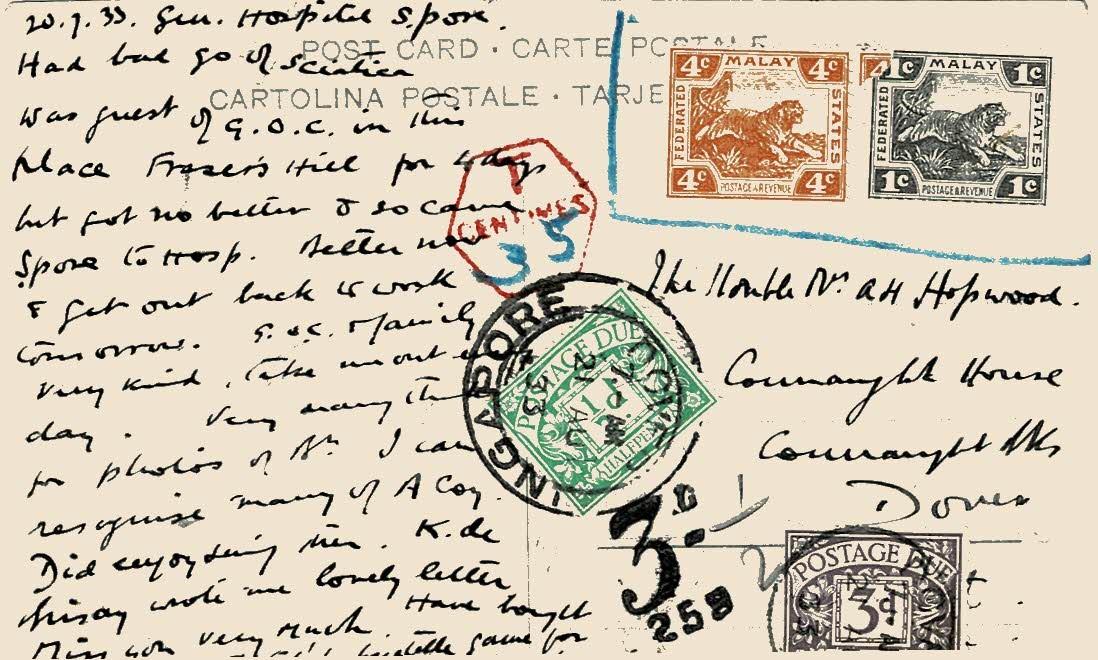 20.7.33. Gen. Hospital S.pore.
Had bad go of Sciatica
was guest of G.O.C. in this
place Fraser's Hill for 4 days
but got no better & so came
S.pore to Hosp. Better now
& get out back to work
tomorrow. G.O.C. & family
very kind, take me out
day. Very many
for photos of Bn. I can
recognise many of A Coy.
Did enjoy seeing them. K. de
wrote me lovely letter
Miss you very much. Have bought
game for
POST CARD · CARTE POSTALE
CARTOLINA POSTALE · TARJE
T
CENTIMES
35
4c MALAY 4c
FEDERATED STATES
4c POSTAGE & REVENUE 4c
4
1c MALAY 1c
FEDERATED STATES
1c POSTAGE & REVENUE 1c
The Honble Mrs A H Hopwood.
Connaught House
Connaught Rds
Dover
INGAPORE
POSTAGE DUE
½d
HALFPE
7 - AM
21 AU
33
3D.
258
1
2
POSTAGE DUE
3d